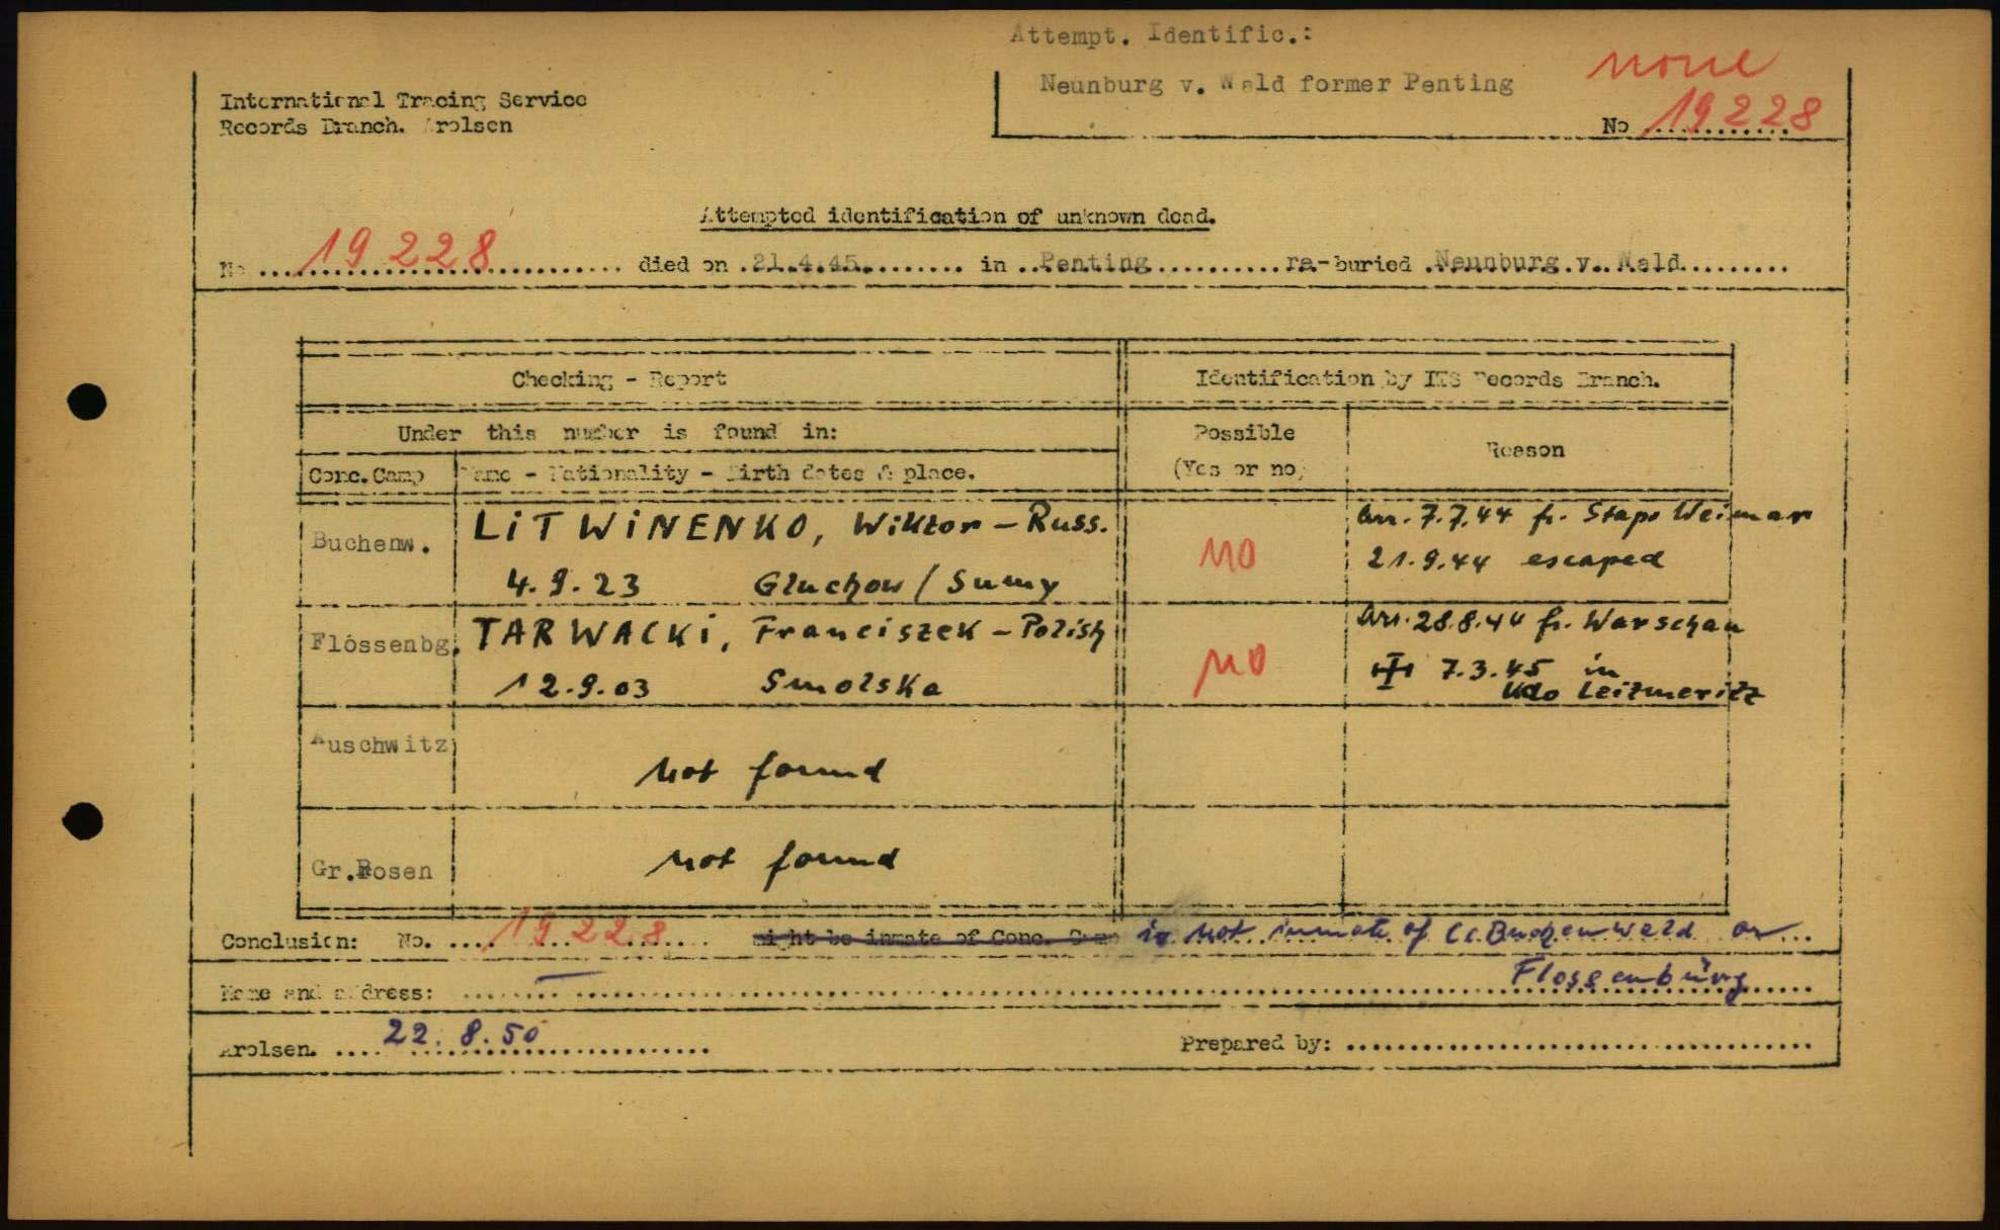 Attempt. Identific.:
none
Neunburg v. Wald former Penting
No 19228
International Tracing Service
Records Branch. Arolsen
Attempted identification of unknown dead.
No 19 228 died on 21.4.45. in Penting re-buried Neunburg v. Wald
Checking - Report
Identification by ITS Records Branch.
Under this number is found in:
Possible
(Yes or no)
Reason
Conc. Camp
Name - Nationality - Birth dates & place.
Buchenw.
LITWINENKO, Wiktor - Russ.
4.9.23 Gluchow / Sumy
no
arr. 7.7.44 fr. Stapo Weimar
21.9.44 escaped
Flossenbg.
TARWACKI, Franciszek - Polish
12.9.03 Smolska
no
arr. 28.8.44 fr. Warschau
7.3.45 in
Kdo Leitmeritz
Auschwitz
not found
Gr.Rosen
not found
Conclusion: No. 19228 might be inmate of Conc. Camp is not inmate of CC. Buchenwald or
Flossenbürg
Name and address: —
Arolsen. 22. 8. 50
Prepared by: